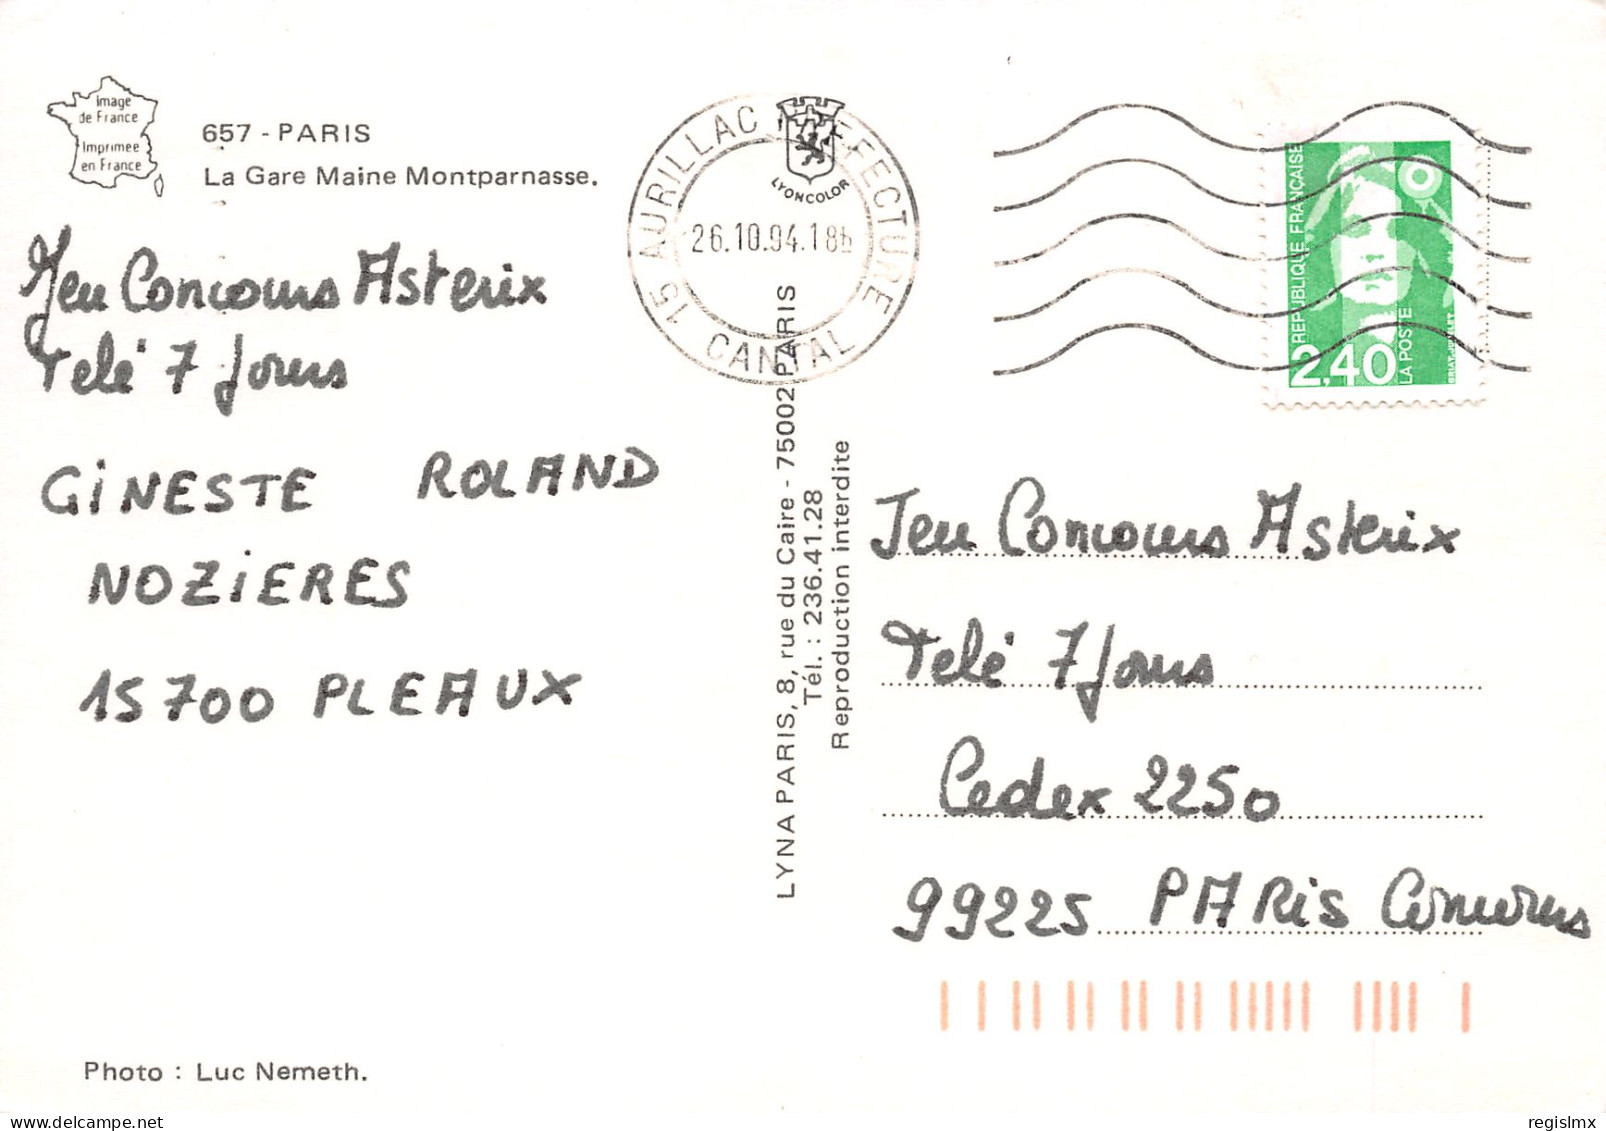 Image
de France
Imprimee
en France
657 - PARIS
La Gare Maine Montparnasse.
Jeu Concours Asterix
Telé 7 Jours
GiNESTE ROLAND
NOZiERES
15700 PLEAUX
Photo : Luc Nemeth.
15 AURILLAC PREFECTURE
26.10.94.18h
CANTAL
LYONCOLOR
LYNA PARIS, 8, rue du Caire - 75002 PARIS
Tél. : 236.41.28
Reproduction interdite
REPUBLIQUE FRANÇAISE
2,40
LA POSTE
BRIAT-JUMELET
Jeu Concours Asterix
Telé 7 Jours
Cedex 2250
99225 PARis Concours
regislmx